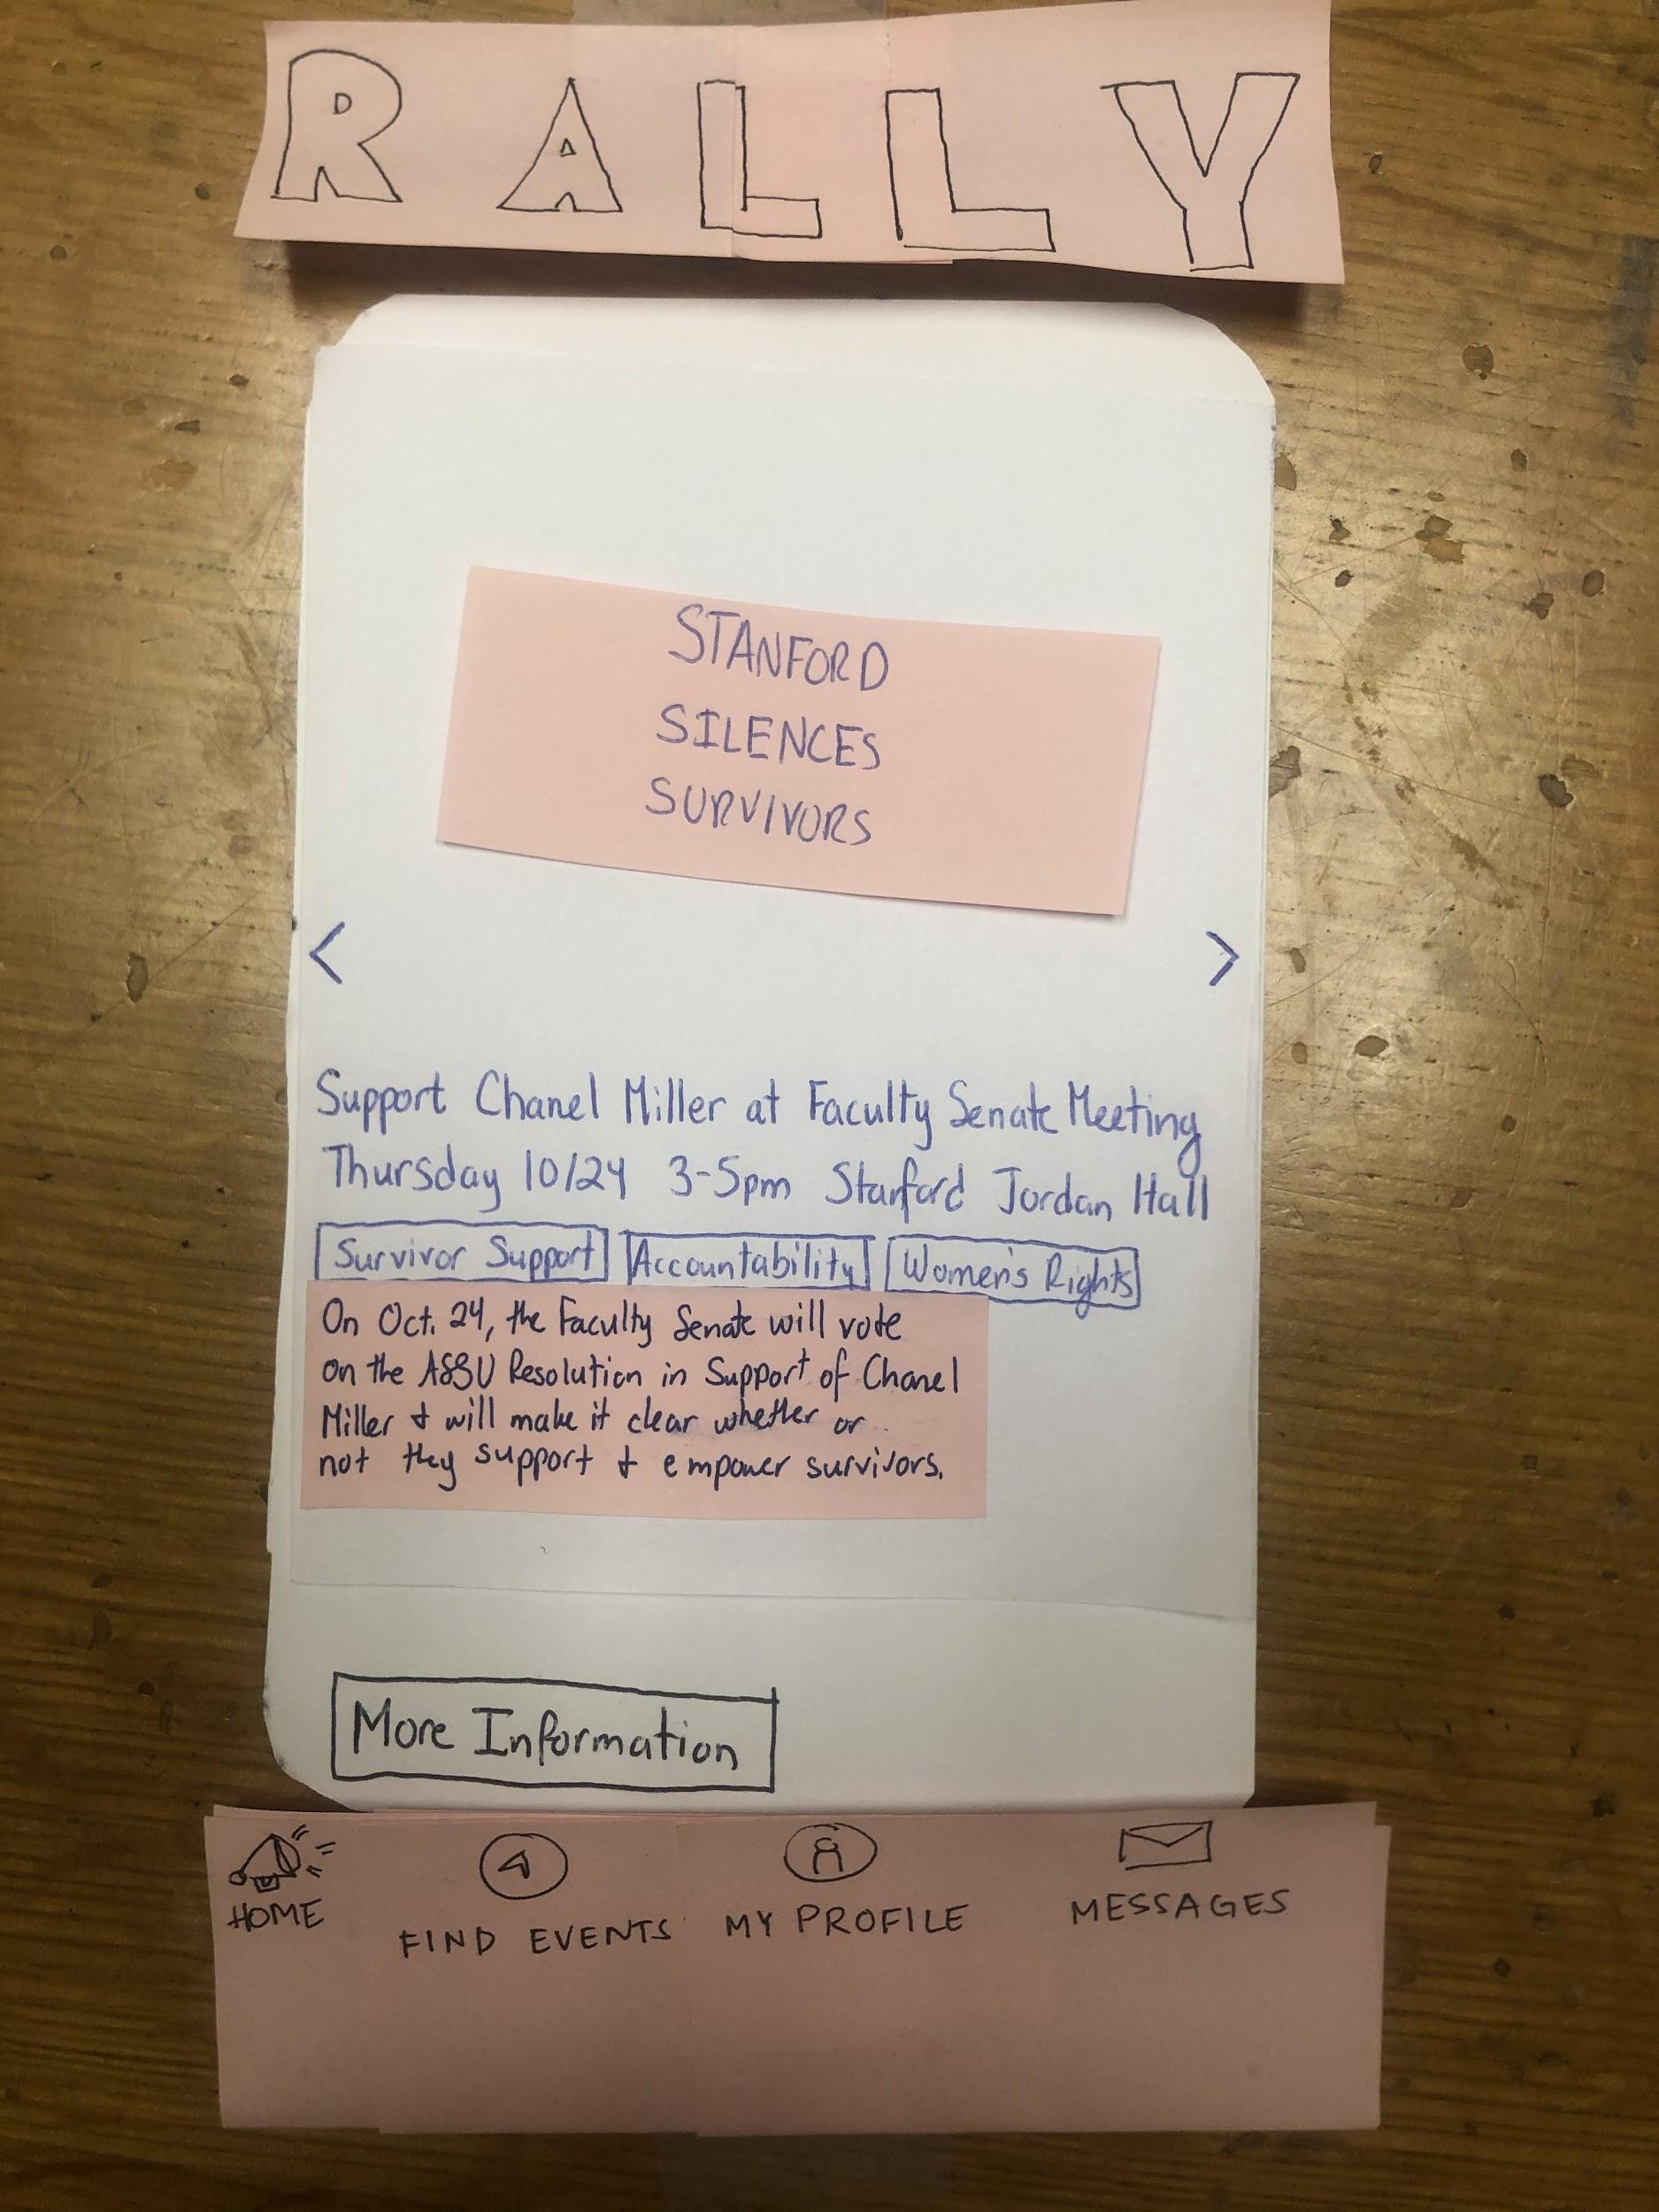 RALLY
STANFORD
SILENCES
SURVIVORS
< >
Support Chanel Miller at Faculty Senate Meeting
Thursday 10/24 3-5pm Stanford Jordan Hall
Survivor Support Accountability Women's Rights
On Oct. 24, the Faculty Senate will vote
on the ASSU Resolution in Support of Chanel
Miller & will make it clear whether or
not they support & empower survivors.
More Information
HOME FIND EVENTS MY PROFILE MESSAGES